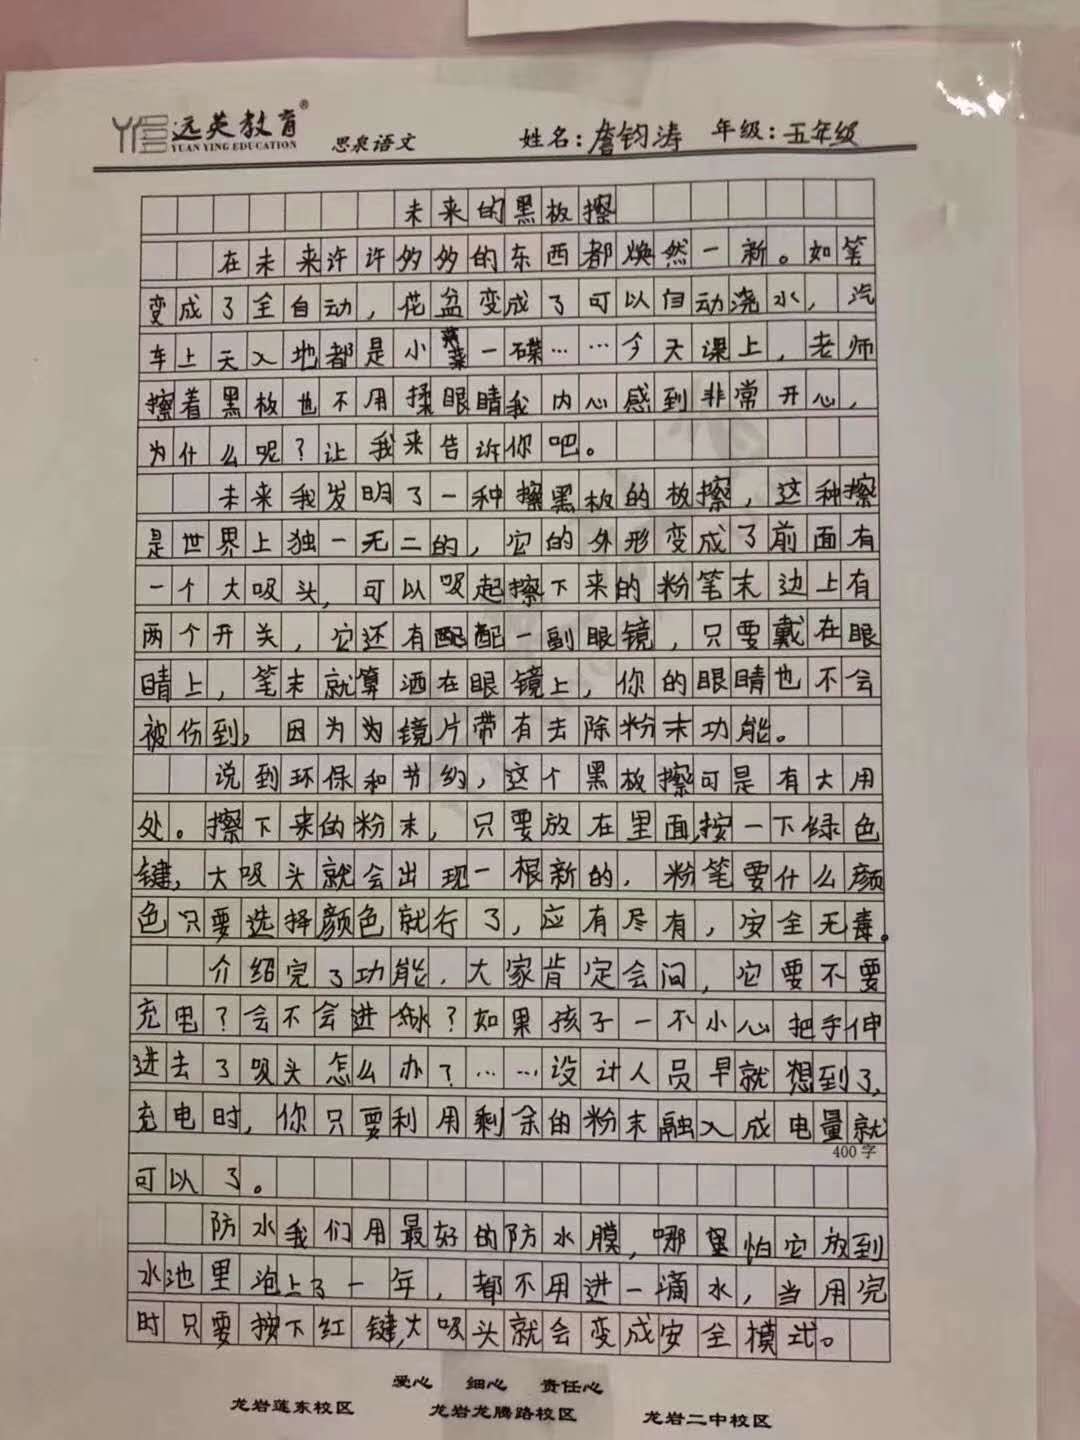 远英教育®
YUAN YING EDUCATION
思泉语文
姓名：詹钧涛 年级：五年级
未来的黑板擦
在未来许许多多的东西都焕然一新。如笔
变成了全自动，花盆变成了可以自动浇水，汽
车上天入地都是小菜一碟……今天课上，老师
擦着黑板也不用揉眼睛我内心感到非常开心，
为什么呢？让我来告诉你吧。
未来我发明了一种擦黑板的板擦，这种擦
是世界上独一无二的，它的外形变成了前面有
一个大吸头，可以吸起擦下来的粉笔末边上有
两个开关，它还有配配一副眼镜，只要戴在眼
睛上，笔末就算洒在眼镜上，你的眼睛也不会
被伤到，因为为镜片带有去除粉末功能。
说到环保和节约，这个黑板擦可是有大用
处。擦下来的粉末，只要放在里面，按一下绿色
键，大吸头就会出现一根新的，粉笔要什么颜
色只要选择颜色就行了，应有尽有，安全无毒。
介绍完了功能，大家肯定会问，它要不要
充电？会不会进水？如果孩子一不小心把手伸
进去了吸头怎么办？……设计人员早就想到了，
充电时，你只要利用剩余的粉末融入成电量就
400字
可以了。
防水我们用最好的防水膜，哪怕它放到
水池里泡上了一年，都不用进一滴水，当用完
时只要按下红键，大吸头就会变成安全模式。
爱心 细心 责任心
龙岩莲东校区 龙岩龙腾路校区 龙岩二中校区